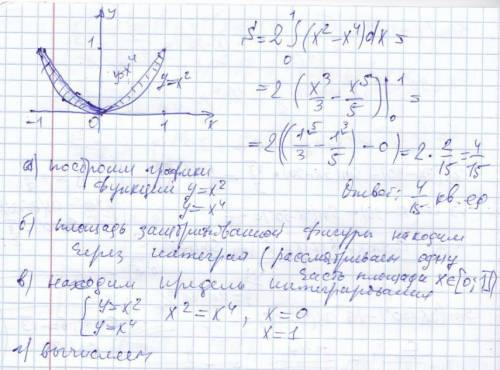 y
1
y=x⁴
y=x²
-1 0 1 x
S = 2∫₀¹(x²-x⁴)dx =
= 2 (x³/3 - x⁵/5)|₀¹ =
= 2((1⁵/3 - 1³/5) - 0) = 2 · 2/15 = 4/15
Ответ: 4/15 кв. ед
а) построим графики
функций y=x²
y=x⁴
б) площадь заштрихованной фигуры находим
через интеграл (рассматриваем одну
часть площади x∈[0;1])
в) находим пределы интегрирования
{y=x² x²=x⁴, x=0
y=x⁴ x=1
г) вычисляем